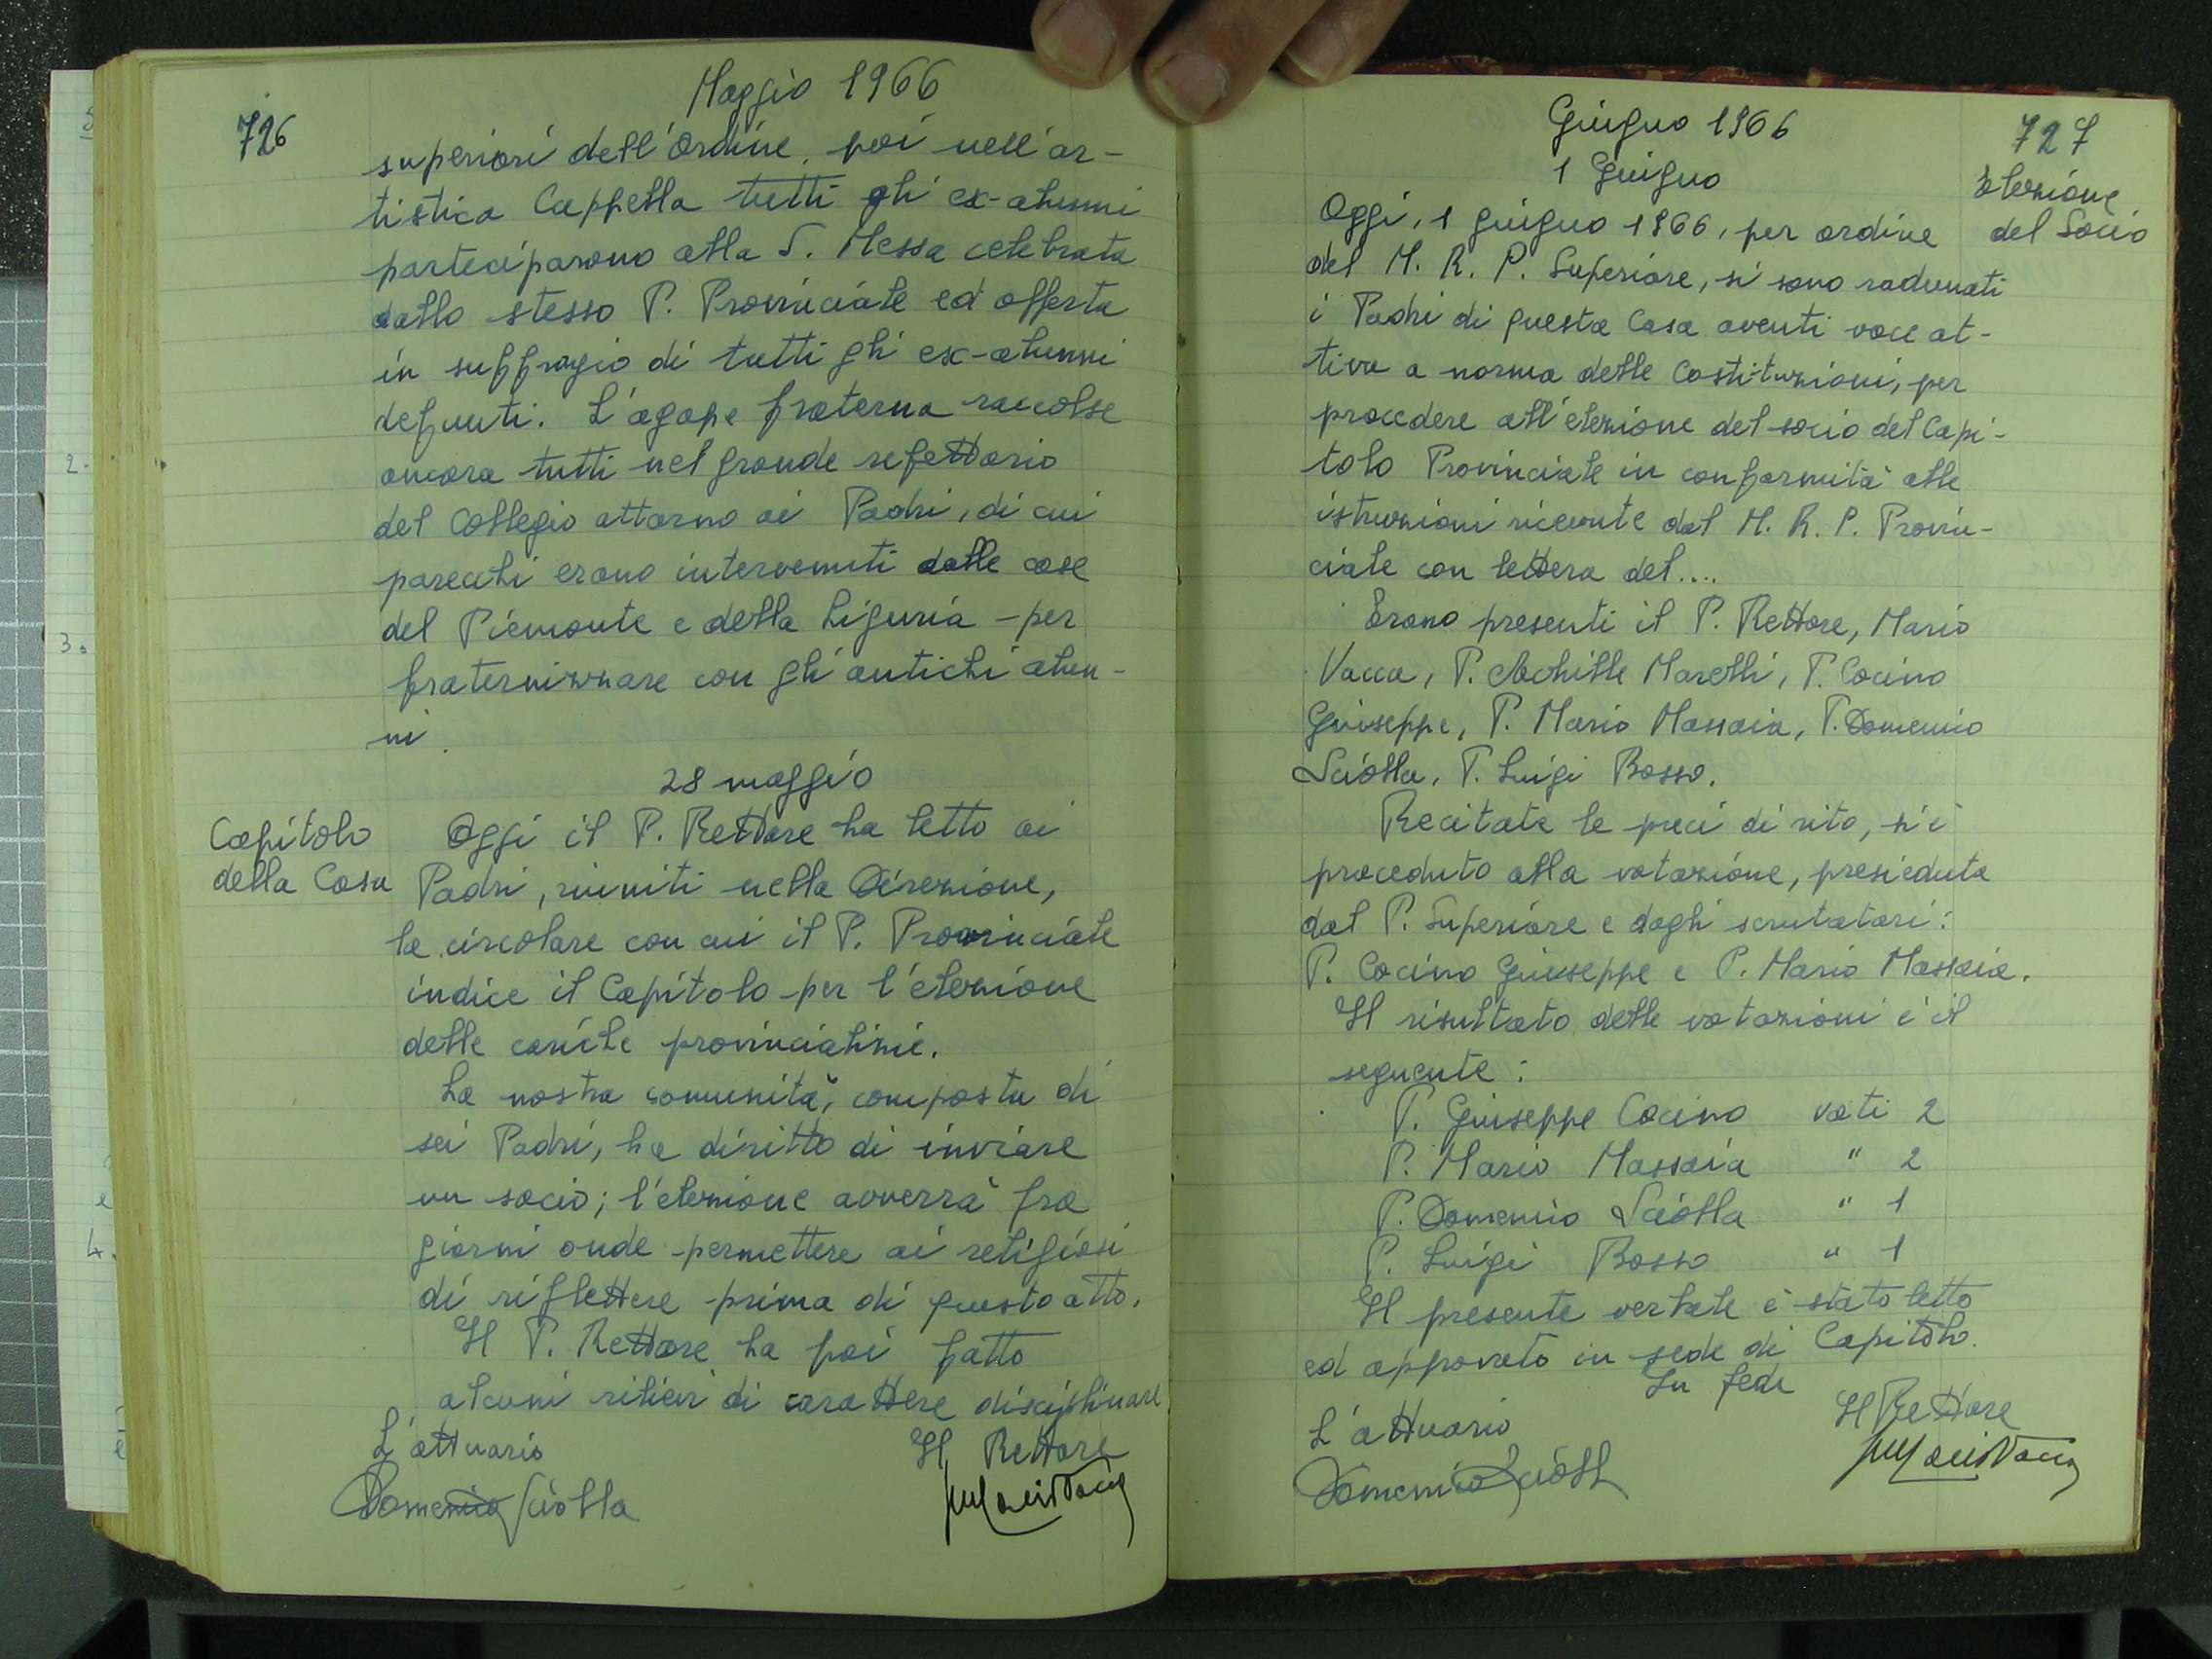 Maggio 1966
726
superiori dell'Ordine, poi nell'ar-
tistica Cappella tutti gli ex-alunni
parteciparono alla S. Messa celebrata
dallo stesso P. Provinciale ed offerta
in suffragio di tutti gli ex-alunni
defunti. L'agape fraterna raccolse
ancora tutti nel grande refettorio
del Collegio attorno ai Padri, di cui
parecchi erano intervenuti dalle case
del Piemonte e della Liguria - per
fraternizzare con gli antichi alun-
ni.
28 maggio
Capitolo
della Casa
Oggi il P. Rettore ha letto ai
Padri, riuniti nella Direzione,
la circolare con cui il P. Provinciale
indice il Capitolo per l'elezione
delle cariche provincializie.
La nostra comunità, composta di
sei Padri, ha diritto di inviare
un socio; l'elezione avverrà fra
giorni onde permettere ai religiosi
di riflettere prima di questo atto.
Il P. Rettore ha poi fatto
alcuni rilievi di carattere disciplinare
L'attuario
Il Rettore
Domenico Sciolla
Giugno 1966
727
1 Giugno
Elezione
del Socio
Oggi, 1 giugno 1966, per ordine
del M. R. P. Superiore, si sono radunati
i Padri di questa Casa aventi voce at-
tiva a norma delle Costituzioni, per
procedere all'elezione del socio del Capi-
tolo Provinciale in conformità alle
istruzioni ricevute dal M. R. P. Provin-
ciale con lettera del....
Erano presenti il P. Rettore, Mario
Vacca, P. Achille Marelli, P. Cocino
Giuseppe, P. Mario Massaia, P. Domenico
Sciolla, P. Luigi Bosso.
Recitate le preci di rito, si è
proceduto alla votazione, presieduta
dal P. Superiore e dagli scrutatori:
P. Cocino Giuseppe e P. Mario Massaia.
Il risultato delle votazioni è il
seguente:
P. Giuseppe Cocino voti 2
P. Mario Massaia " 2
P. Domenico Sciolla " 1
P. Luigi Bosso " 1
Il presente verbale è stato letto
ed approvato in sede di Capitolo.
In fede
L'attuario
Il Rettore
Domenico Sciolla